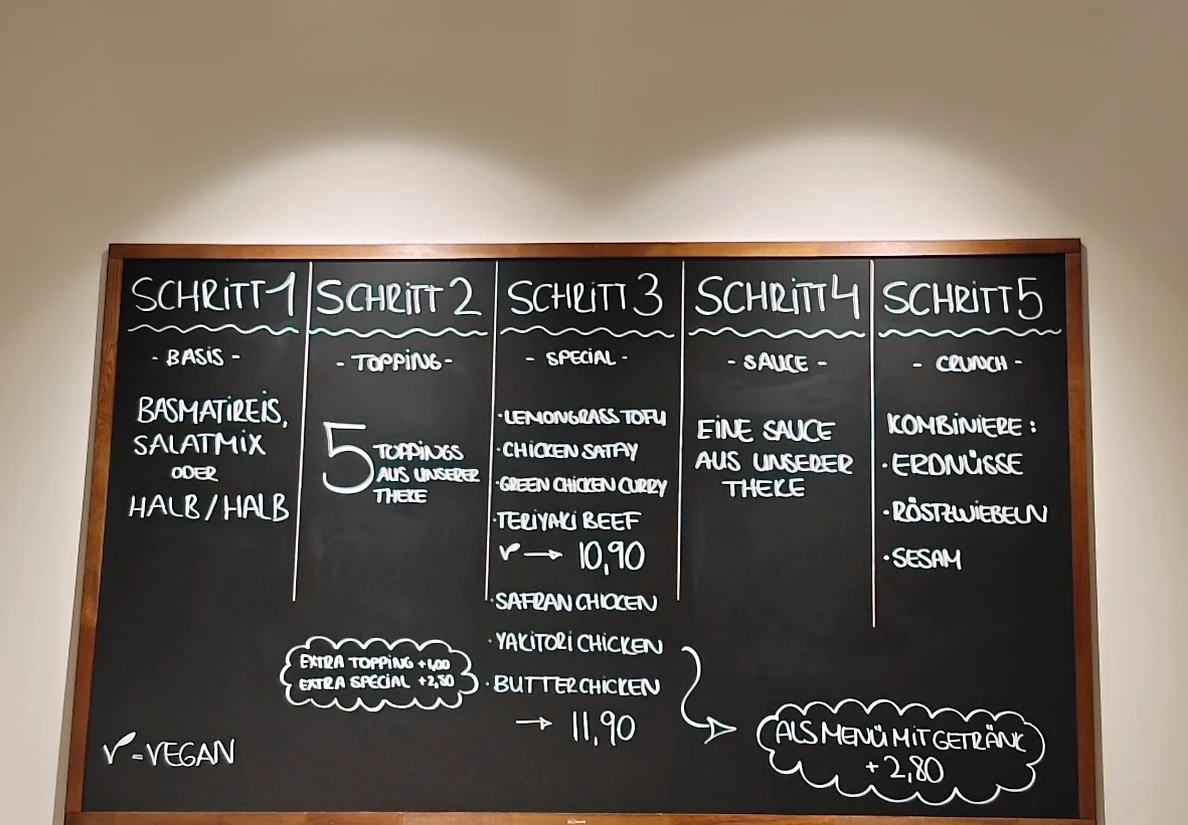 SCHRITT 1
- BASIS -
BASMATIREIS,
SALATMIX
ODER
HALB/HALB
SCHRITT 2
- TOPPING -
5 TOPPINGS
AUS UNSERER
THEKE
EXTRA TOPPING +1,00
EXTRA SPECIAL +2,50
SCHRITT 3
- SPECIAL -
· LEMONGRASS TOFU
· CHICKEN SATAY
· GREEN CHICKEN CURRY
· TERIYAKI BEEF
V → 10,90
· SAFRAN CHICKEN
· YAKITORI CHICKEN
· BUTTERCHICKEN
→ 11,90
SCHRITT 4
- SAUCE -
EINE SAUCE
AUS UNSERER
THEKE
SCHRITT 5
- CRUNCH -
KOMBINIERE:
· ERDNÜSSE
· RÖSTZWIEBELN
· SESAM
ALS MENÜ MIT GETRÄNK
+ 2,80
V = VEGAN